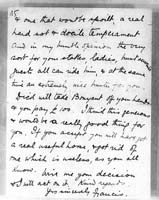 & one that won't be spoilt, a real
hand not & docile temperament
and in my humble opinion the very
sort for your states ladies, but most
guests all can ride him, & at the same
time an extremely nice hunter for you.
Dick will take Bryant off your hands
& you pay £100. I think this personally
would be a really good thing for
you. If you accept you will have got
a real useful horse, & get rid of
one which is useless, as you all
know. Wire me your decision
& I will act on it. Kind regards
yrs sincerely Francis.